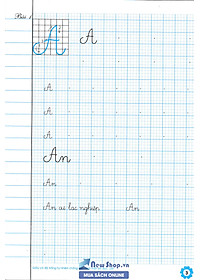 Bài 1
A A
A
A
A
An
An
An cư lạc nghiệp An
NewShop.vn
MUA SÁCH ONLINE